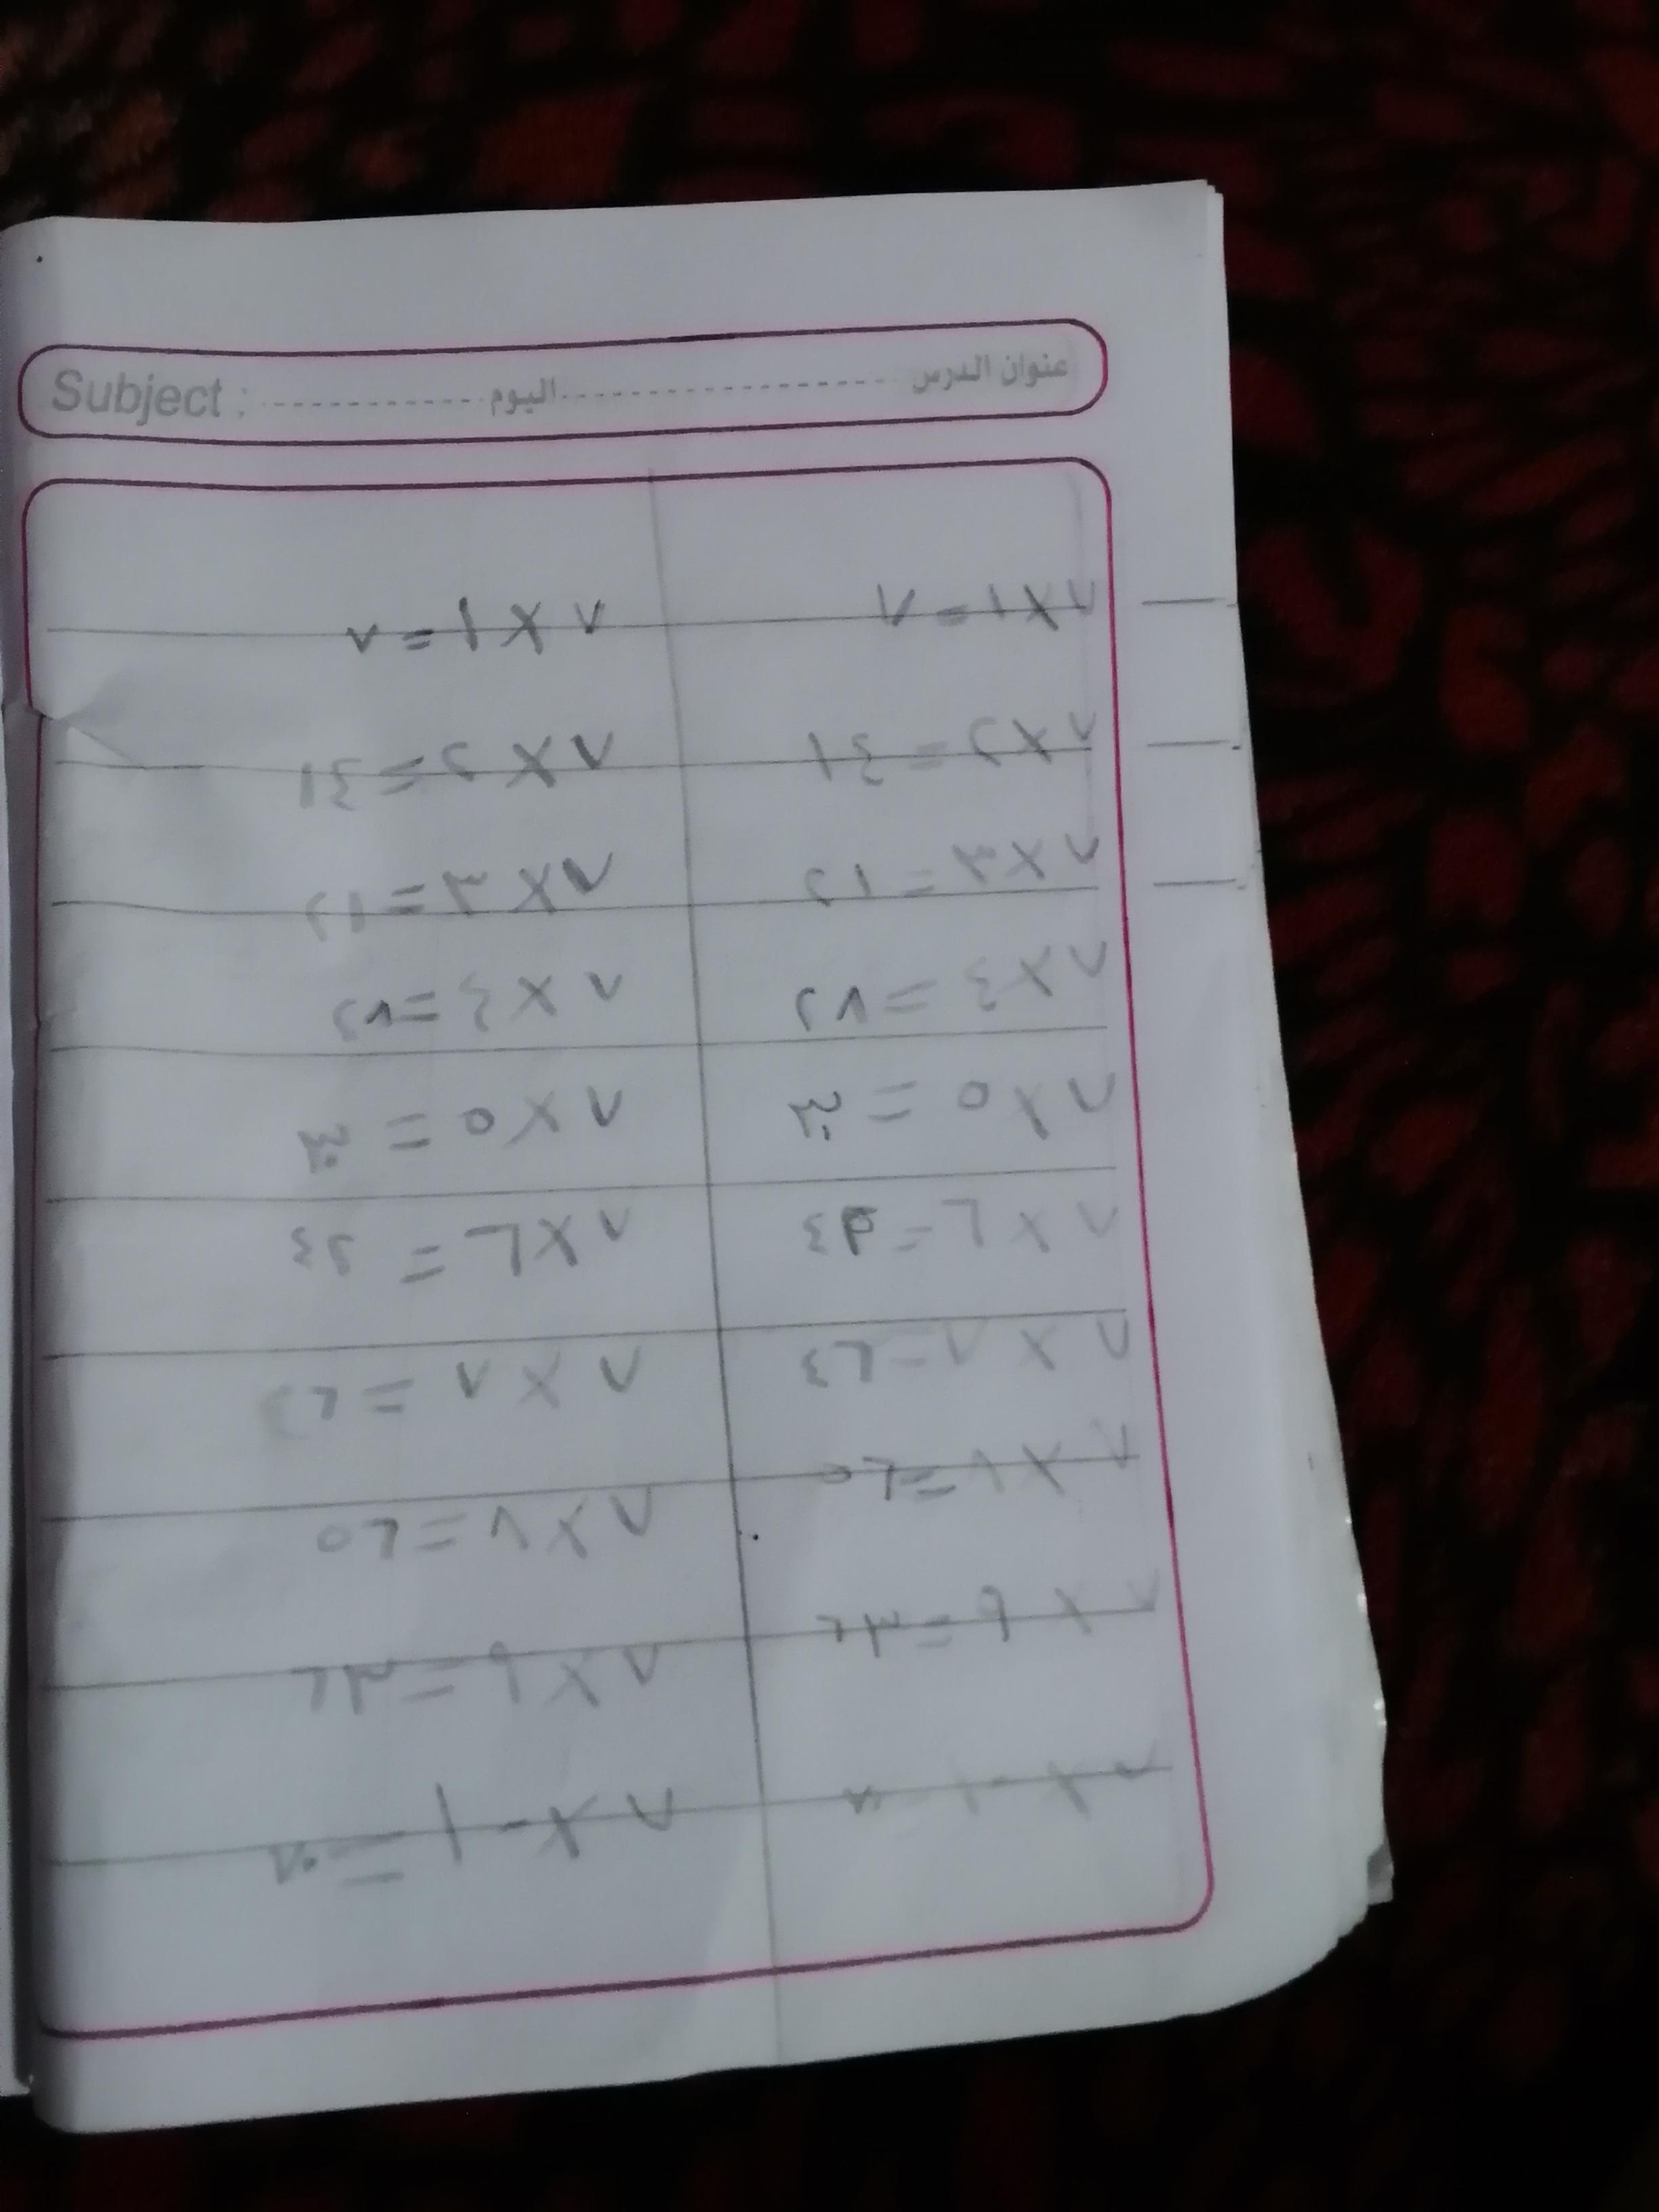 عنوان الدرس اليوم Subject :
٧ × ١ = ٧ ٧ × ١ = ٧
٧ × ٢ = ١٤ ٧ × ٢ = ١٤
٧ × ٣ = ٢١ ٧ × ٣ = ٢١
٧ × ٤ = ٢٨ ٧ × ٤ = ٢٨
٧ × ٥ = ٧ × ٥ =
٧ × ٦ = ٧ × ٦ = ٤٢
٧ × ٧ = ٧ × ٧ =
٧ × ٨ = ٥٦ ٧ × ٨ = ٥٦
٧ × ٩ = ٦٣ ٧ × ٩ = ٦٣
٧ × ١٠ = ٧ × ١٠ = ٧٠